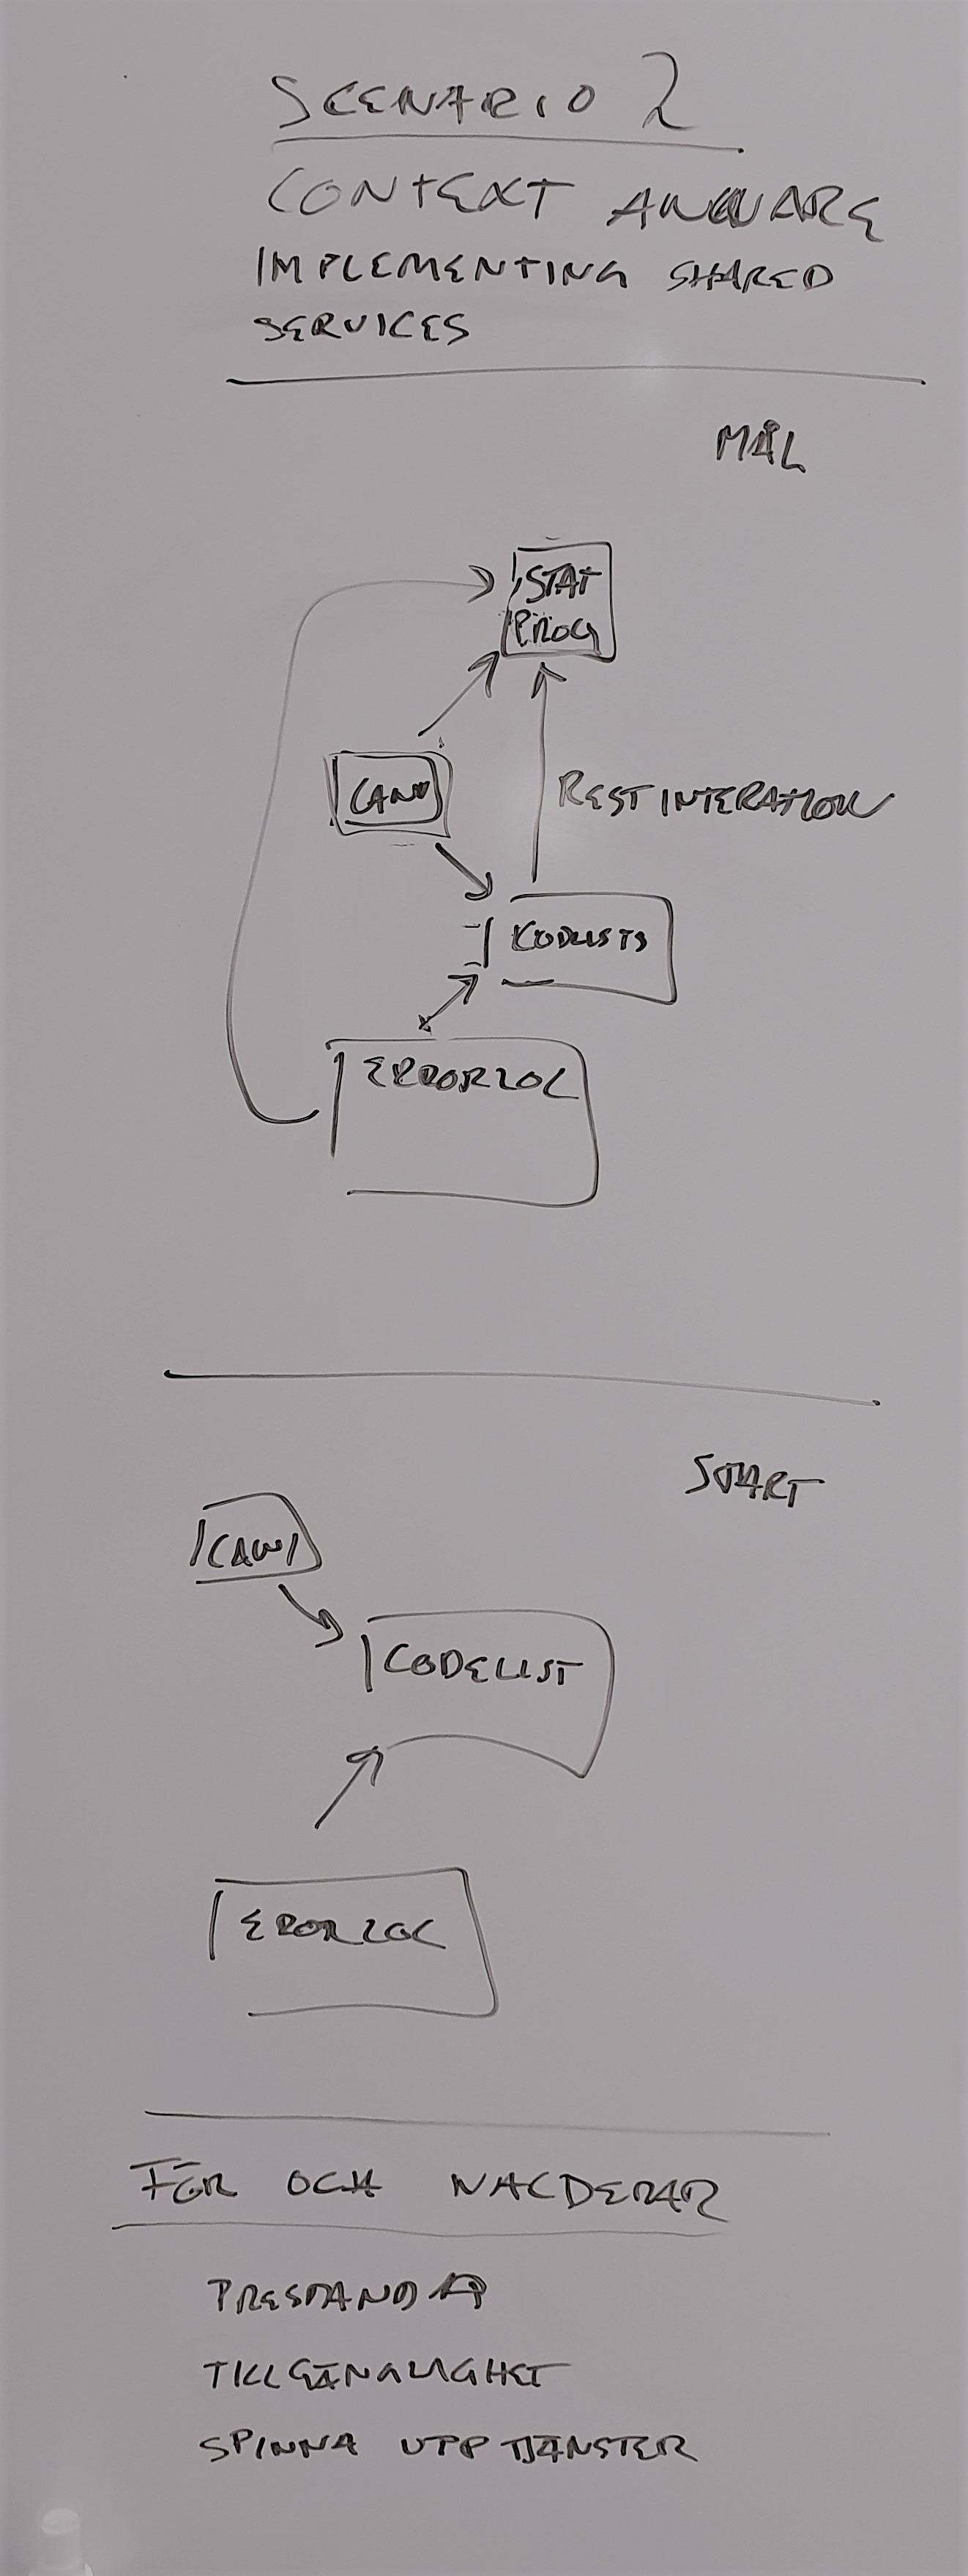 SCENARIO 2
CONTEXT AWARE
IMPLEMENTING SHARED
SERVICES
MÅL
STAT
PROG
CAWI
REST INTERATION
KODLISTS
ERRORLOC
START
CAWI
CODELIST
ERORLOC
FÖR OCH NACDERAR
PRESTANDA
TILLGÄNGLIGHET
SPINNA UPP TJÄNSTER